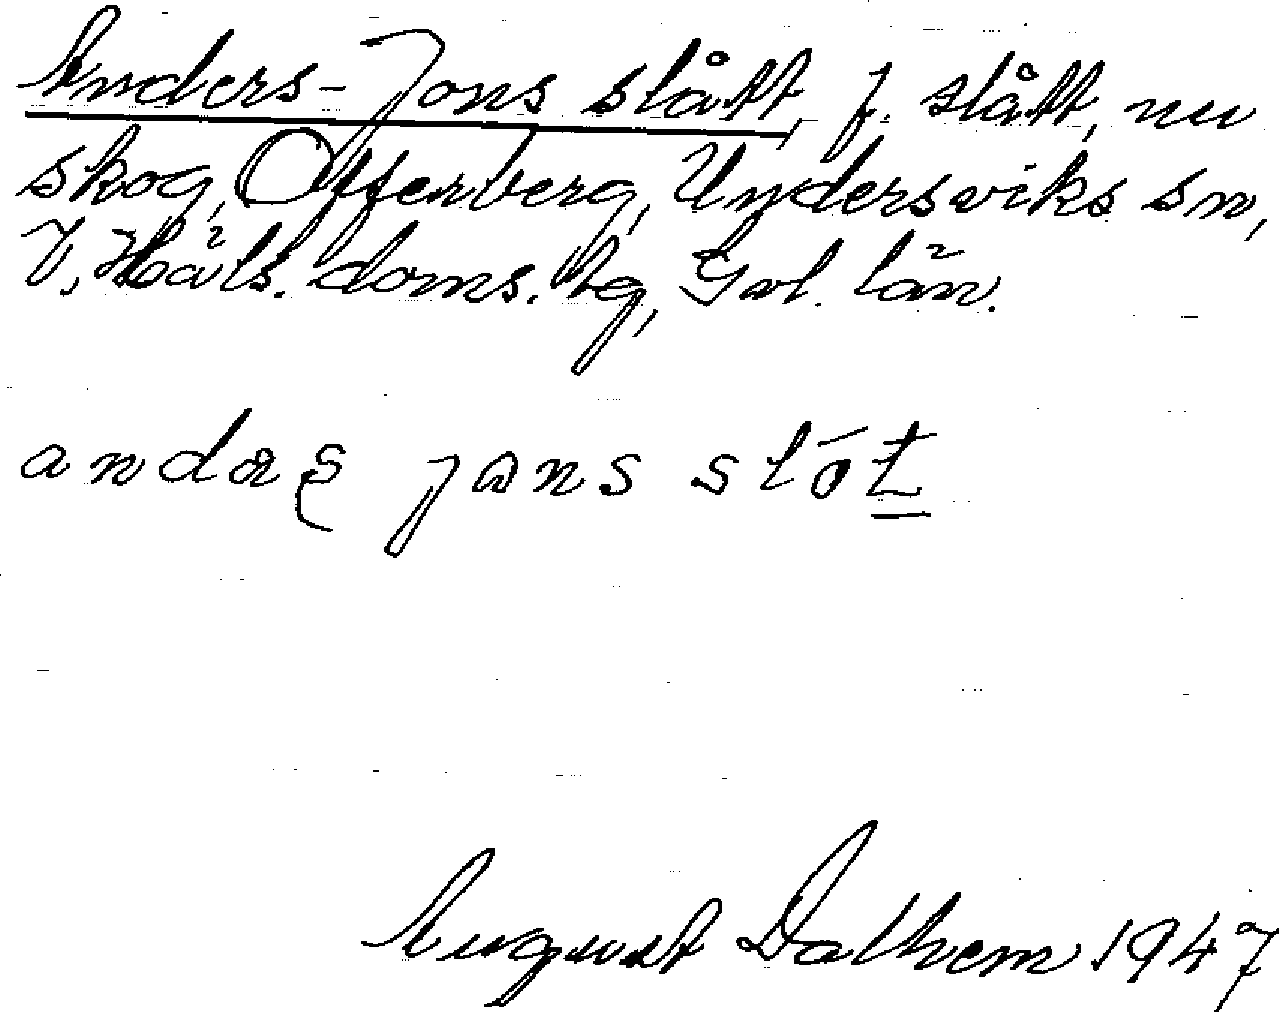 Anders-Jons slått, f. slått, nu
skog, Offerberg, Undersviks sn,
V. Häls. doms. tg, Gvl. län.
andæʂ jɷns slót
August Dalhem 1947